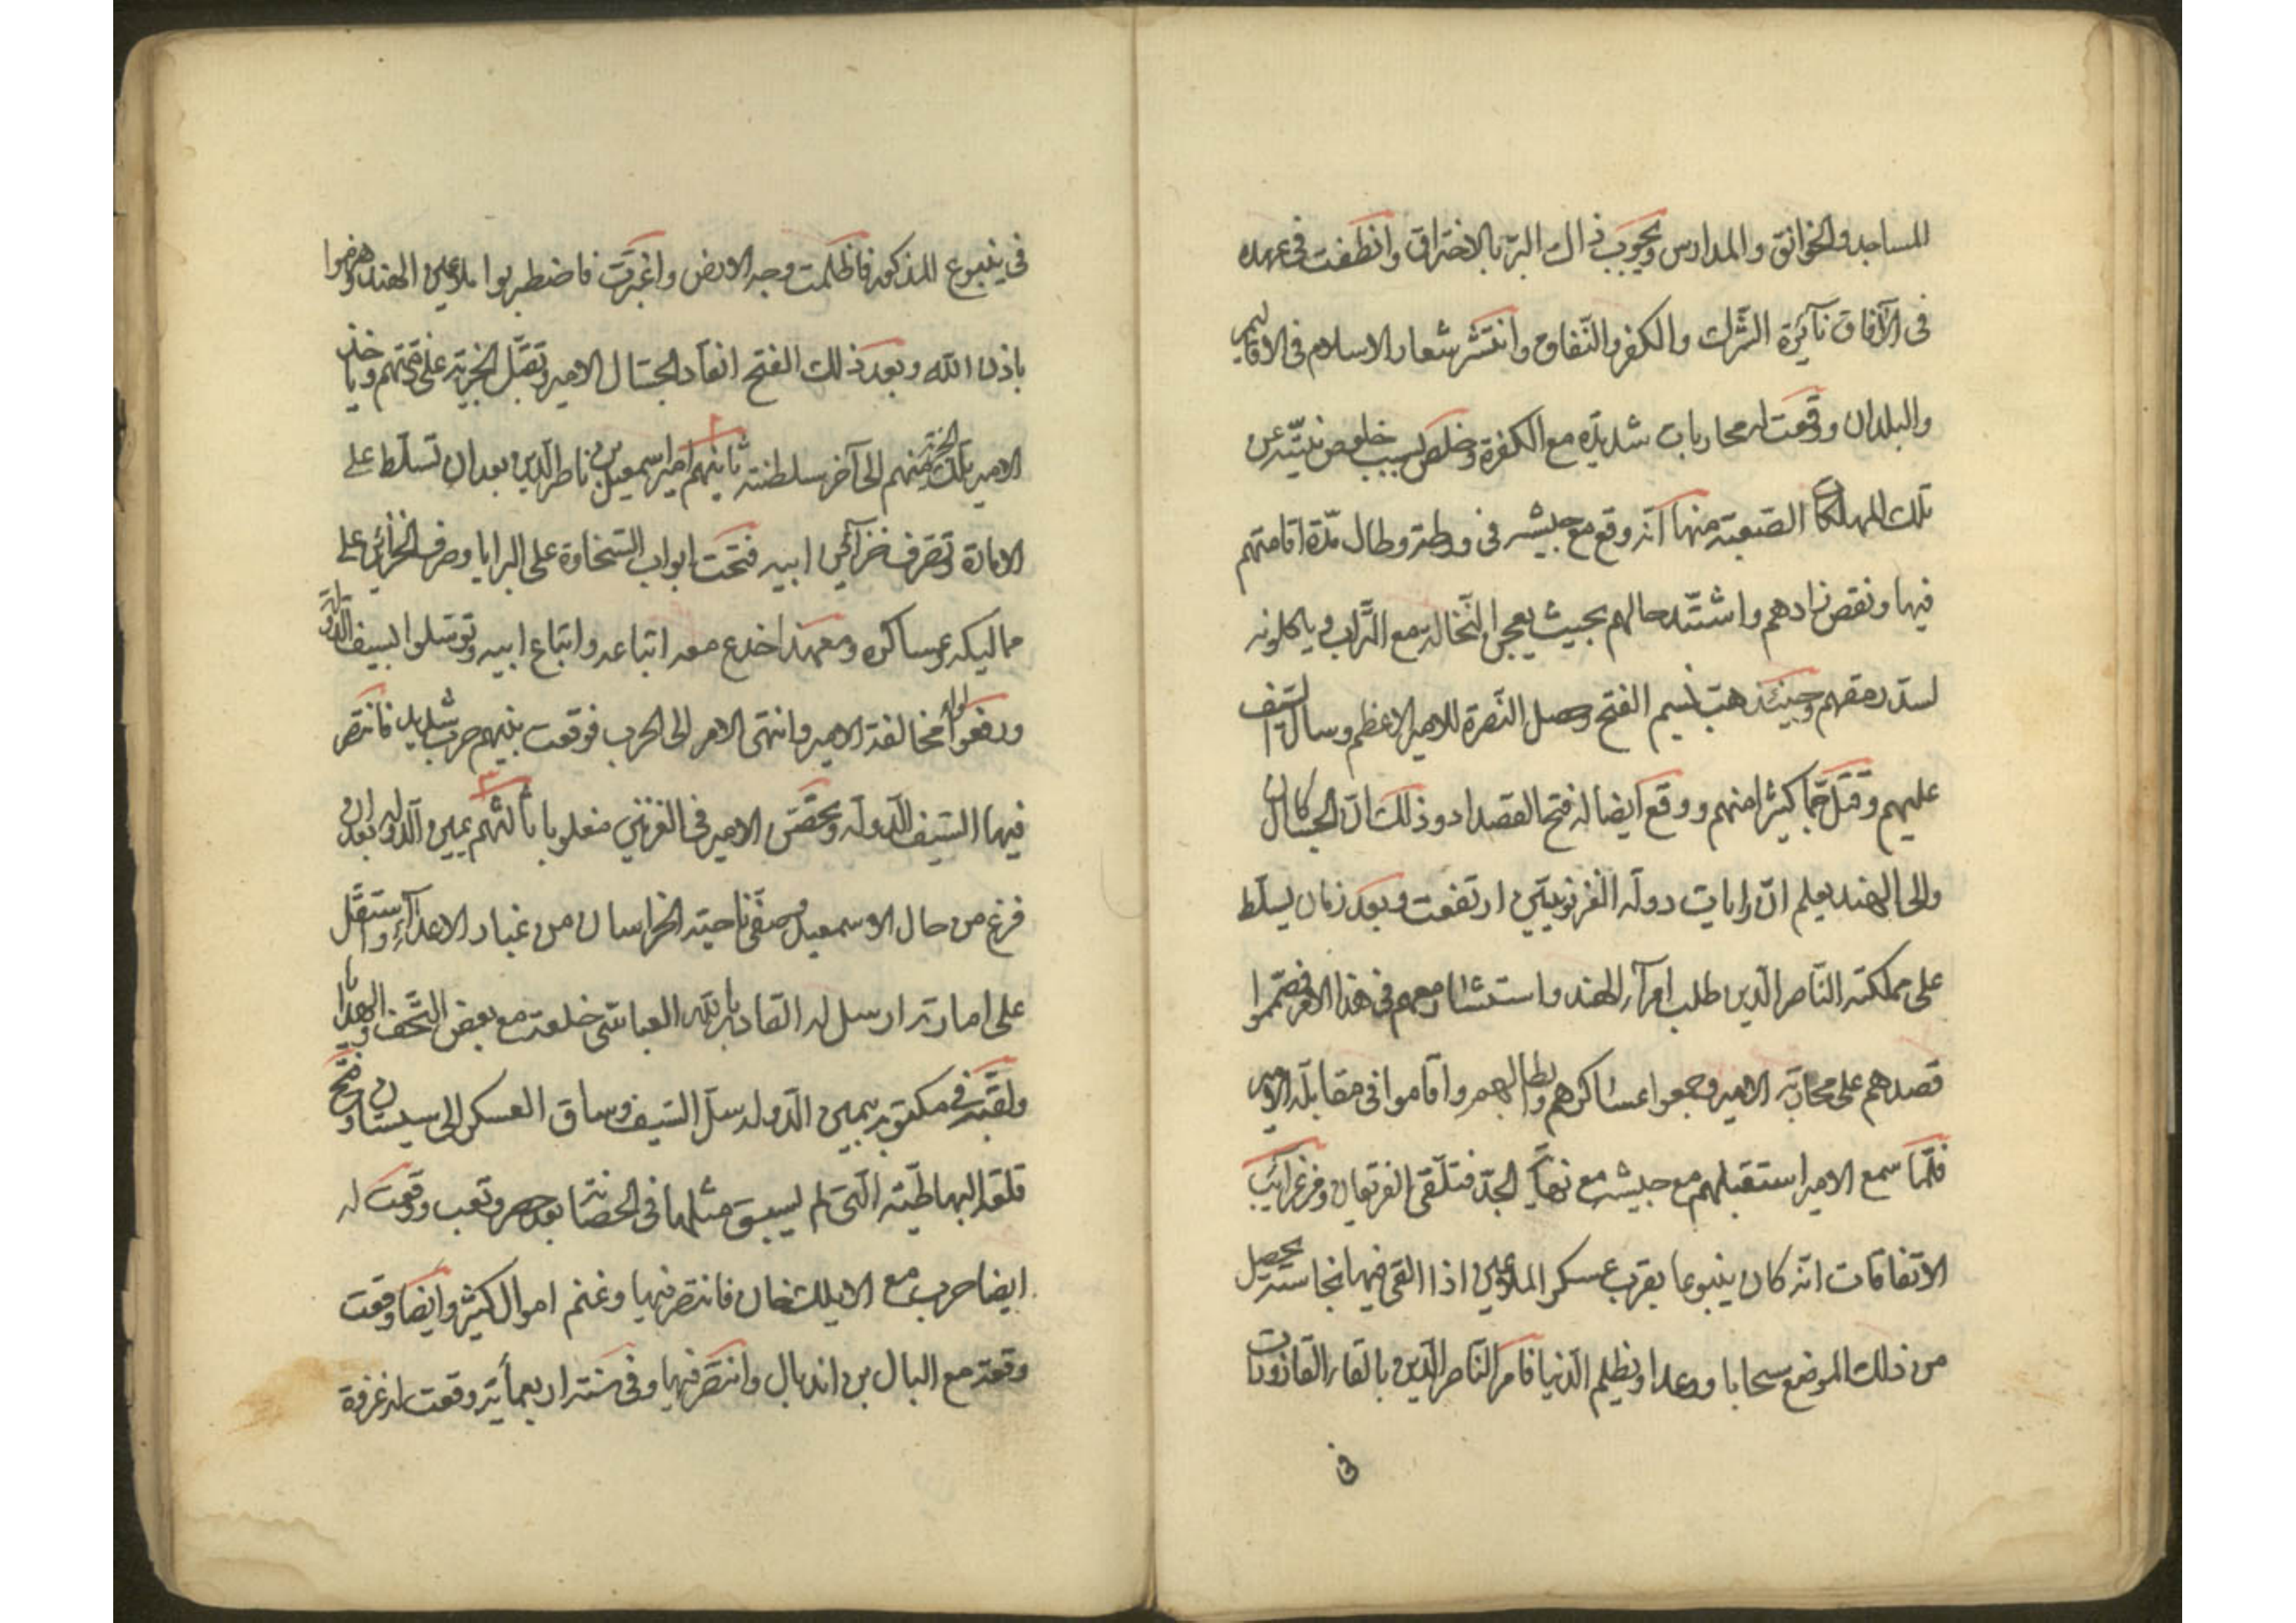 المساجد والخوانق والمدارس ويجوب ذالك البر بالاختراق وانطفت فى عهده
فى الآفاق نآئرة الشرك والكفر والنفاق وانتشر شعار الاسلام فى الاقاليم
والبلدان ووقعت له محاربات شديدة مع الكفرة وخلص بسبب خلوص نيته عن
تلك المهالكات الصعبة منها انه وقع مع جيشه فى ورطة وطال مدة اقامتهم
فيها ونقص زادهم واشتد حالهم بحيث يعجن النخالة مع التراب ويأكلونه
لسد رمقهم وحينئذ هب نسيم الفتح وحصل النصرة للامير الاعظم وسال السيف
عليهم وقتل جما كثيرا منهم ووقع ايضا له فتح القصدار وذلك ان الجسال كان
والى الهند يعلم ان رايات دولة الغزنويين ارتفعت وبعد زمان يسلط
على مملكته الناصر الدين طلب امرآء الهند واستشار معهم فى هذا الامر فصمموا
قصدهم على محاربة الامير وجمعوا عساكرهم وابطالهم واقاموا فى مقابلة الامير
فلما سمع الامير استقبلهم مع جيشه مع نهاية الجد فتلقى الفريقان ومن غرائب
الاتفاقات انه كان ينبوعا بقرب عسكر الملاعين اذا القى فيها نجاسة يحصل
من ذلك الموضع سحابا ورعدا ويظلم الدنيا فامر الناصر الدين بالقاء القاذورات
فى
فى ينبوع المذكور فاظلمت وجه الارض واغبرت فاضطربوا ملاعين الهند وهزموا
باذن الله وبعد ذلك الفتح انقاد الجسال الامير وتقبل الجزية على ذمتهم ويأخذ
الامير تلك الجزية منهم الى آخر سلطنته ثانيهم امير اسمعيل بن ناصر الدين بعد ان تسلط على
الامارة وتصرف خزآئن ابيه فتحت ابواب السخاوة على البرايا وصرف الخزائن على
مماليكه وعساكره ومع هذا خدع معه اتباعه واتباع ابيه وتوسلوا بسيف الدولة
ورفعوا لواء مخالفة الامير وانتهى الامر الى الحرب فوقعت بينهم حرب شديد فانتصر
فيها السيف الدولة وتحصن الامير فى الغزنين مغلوبا ثالثهم يمين الدولة بعد ان
فرغ من حال الاسمعيل وصفى ناحية الخراسان من غبار الاعدآء واستقل
على امارته ارسل له القادر بالله العباسى خلعت مع بعض التحف والهدايا
ولقبه فى مكتوبه بيمين الدولة وسل السيف وساق العسكر الى سيستان وفتح
قلعة البهاطية التى لم يسبق مثلها فى الحصانة بعد حصر وتعب ووقعت له
ايضا حرب مع الايلك خان فانتصر فيها وغنم اموال كثير وايضا وقعت
وقعة مع البال بن اندبال وانتصر فيها وفى سنة اربعمأية وقعت له غزوة